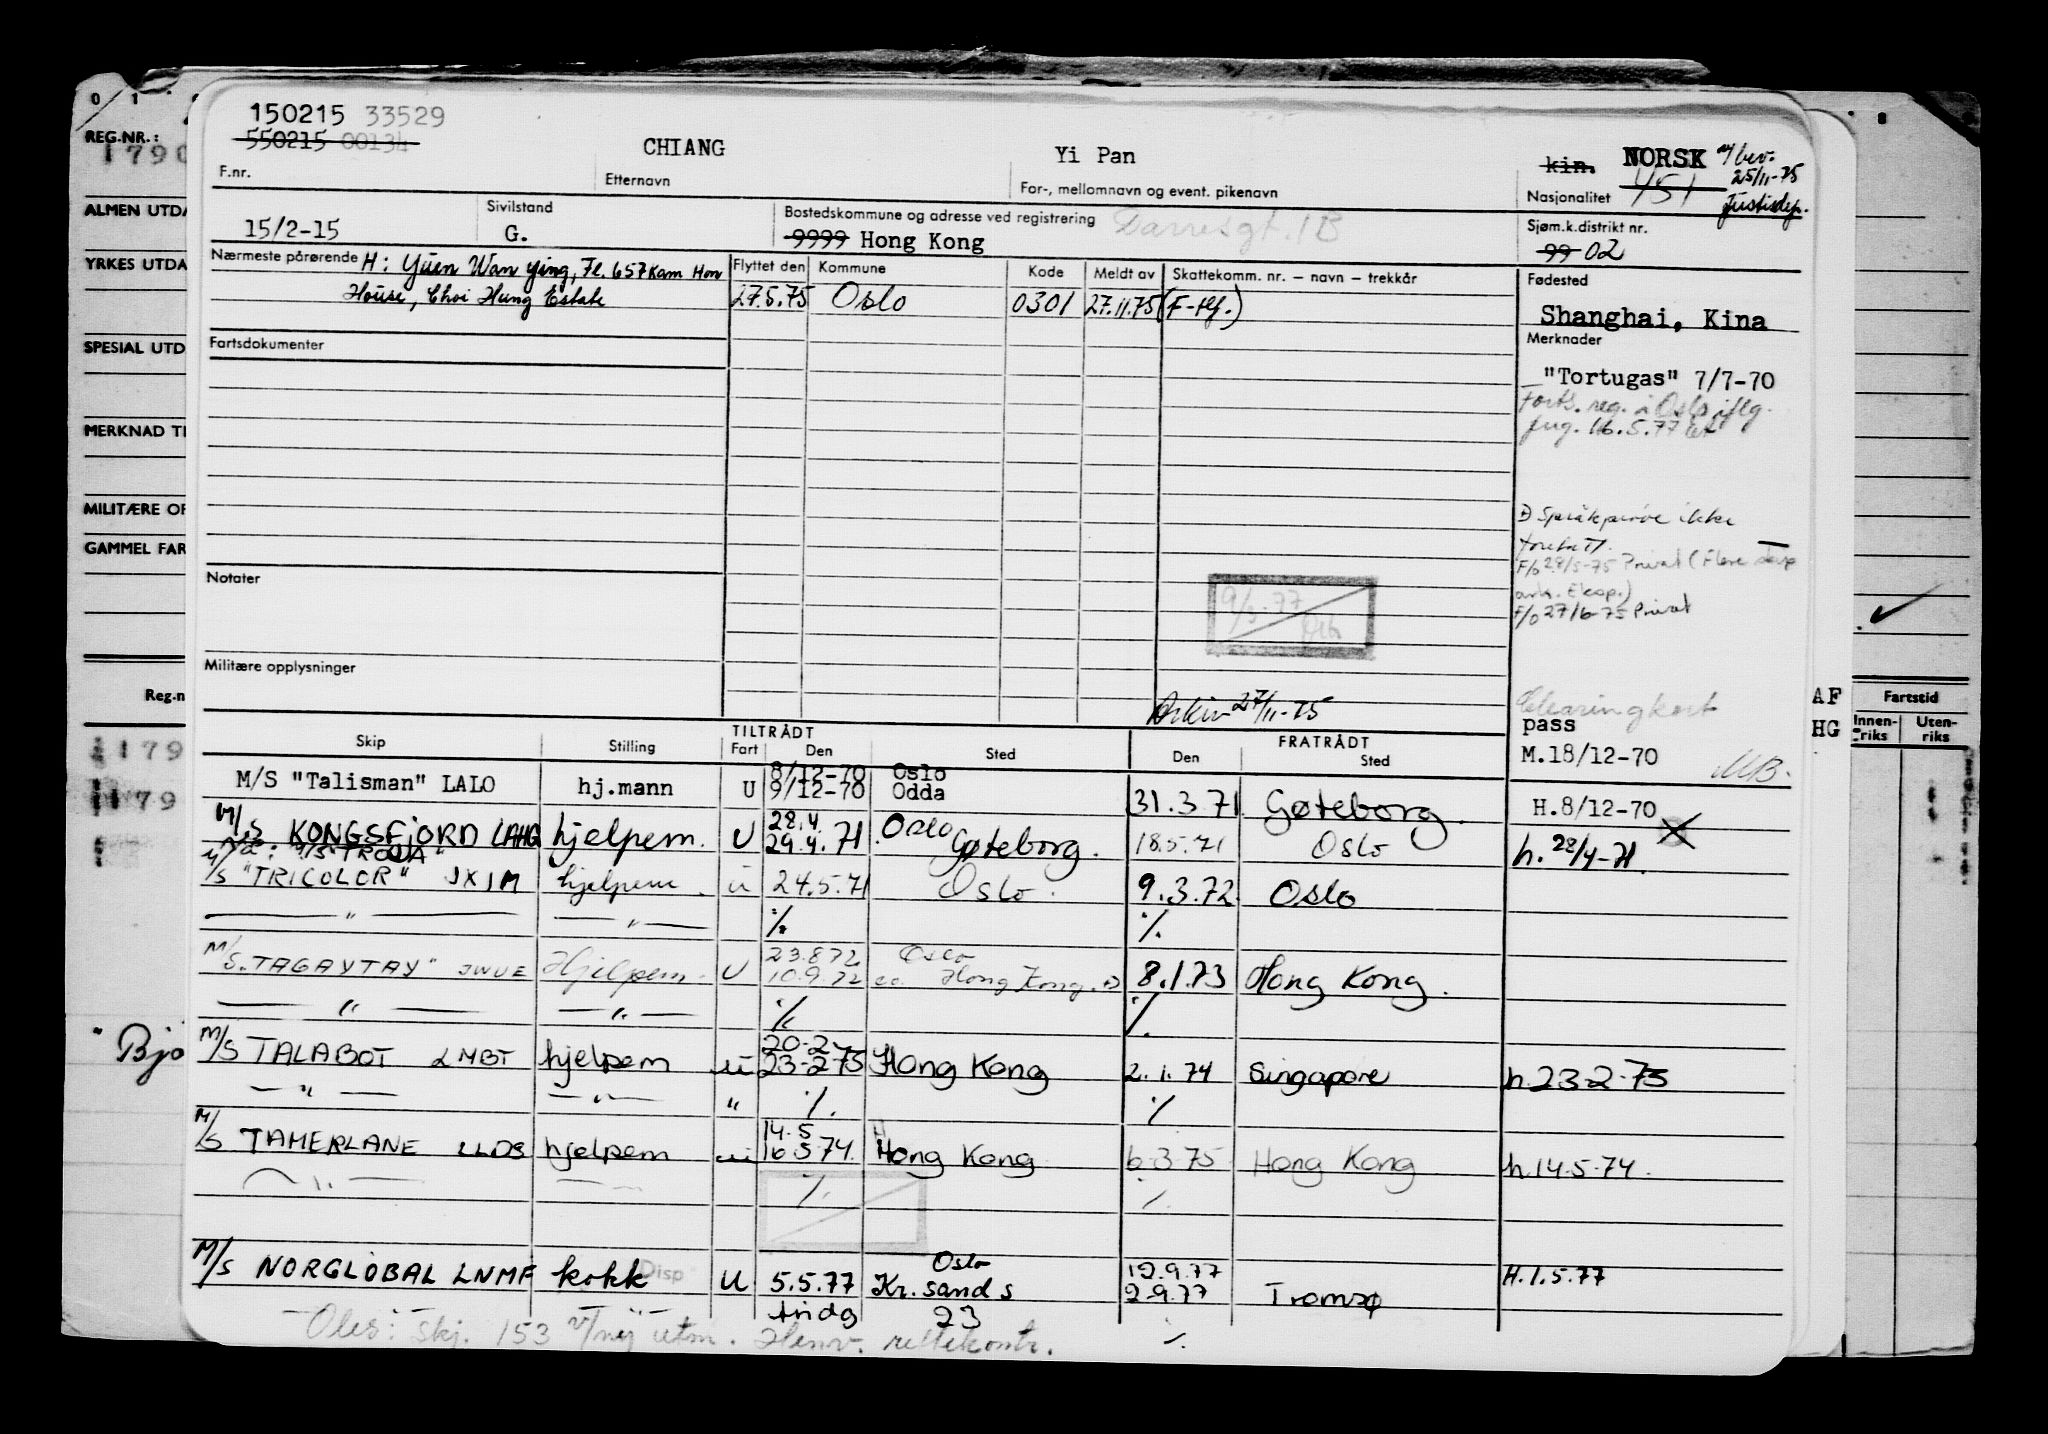 0 1
8
REG.NR.:
1790
ALMEN UTDA
YRKES UTDA
SPESIAL UTD
MERKNAD TI
MILITÆRE OP
GAMMEL FAR
Reg.n
179
179
" Bjo
150215 33529
550215 00134
F.nr.
CHIANG
Etternavn
Yi Pan
For-, mellomnavn og event. pikenavn
kin. NORSK m/bev.
25/11-75
Justisdep.
Nasjonalitet 451
15/2-15
Sivilstand
G.
Bostedskommune og adresse ved registrering
9999 Hong Kong
Sjøm.k.distrikt nr.
99 02
Nærmeste pårørende H: Yuen Wan Ying, Fl. 657 Kam Hon
House, Choi Hung Estate
Flyttet den Kommune Kode Meldt av Skattekomm. nr. – navn – trekkår
27.5.75 Oslo 0301 27.11.75 (F-
Fødested
Shanghai, Kina
Fartsdokumenter
Merknader
"Tortugas" 7/7-70
Forts. reg. i Oslo iflg.
16.5.77
Språkprøve ikke
foretatt.
F/o 28/5-75 Privat (Flere
F/o 27/6-75 Privat
Notater
9/5.77
Militære opplysninger
Arkiv 27/11-75
Clearingkort
pass
M.18/12-70
MB.
AF
HG
Fartstid
Innen-riks Uten-riks
Skip Stilling TILTRÅDT Fart Den Sted FRATRÅDT Den Sted
M/S "Talisman" LALO hj.mann U 8/12-70 Oslo
9/12-70 Odda 31.3.71 Gøteborg. H.8/12-70
M/S KONGSFJORD LAHG hjelpem. U 28.4. Oslo
29.4.71. Gøteborg. 18.5.71 Oslo h. 28/4-71.
M/S "TROJA"
M/S "TRICOLOR" JXIM hjelpem. u 24.5.71 Oslo. 9.3.72 Oslo
— " — — " — % %
M/S. "TAGAYTAY" JWUE Hjelpem. U 23.8.72 Oslo
10.9.72 Hong Kong. 8.1.73 Hong Kong.
— " — — " — % %
M/S TALABOT LMBT hjelpem u 20-2
23-2-75 Hong Kong 2.1.74 Singapore h.23-2-73
— " — — " — " % %
M/S TAMERLANE LLDS hjelpem u 14.5
16.5.74. Hong Kong 6.3.75 Hong Kong h.14.5-74.
— " — — % %
M/S NORGLOBAL LNMF kokk Disp U 5.5.77 Oslo
Kr.sand s 12.9.77
2.9.77 Tromsø H.1.5.77
23 %
153